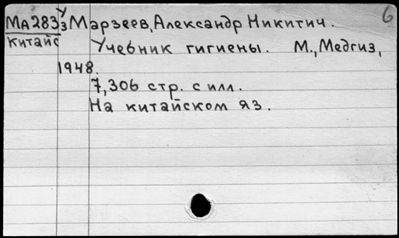 У 6
МА283 3 Марзеев, Александр Никитич.
Китайс Учебник гигиены. М., Медгиз,
1948.
7,306 стр. с илл.
На китайском яз.